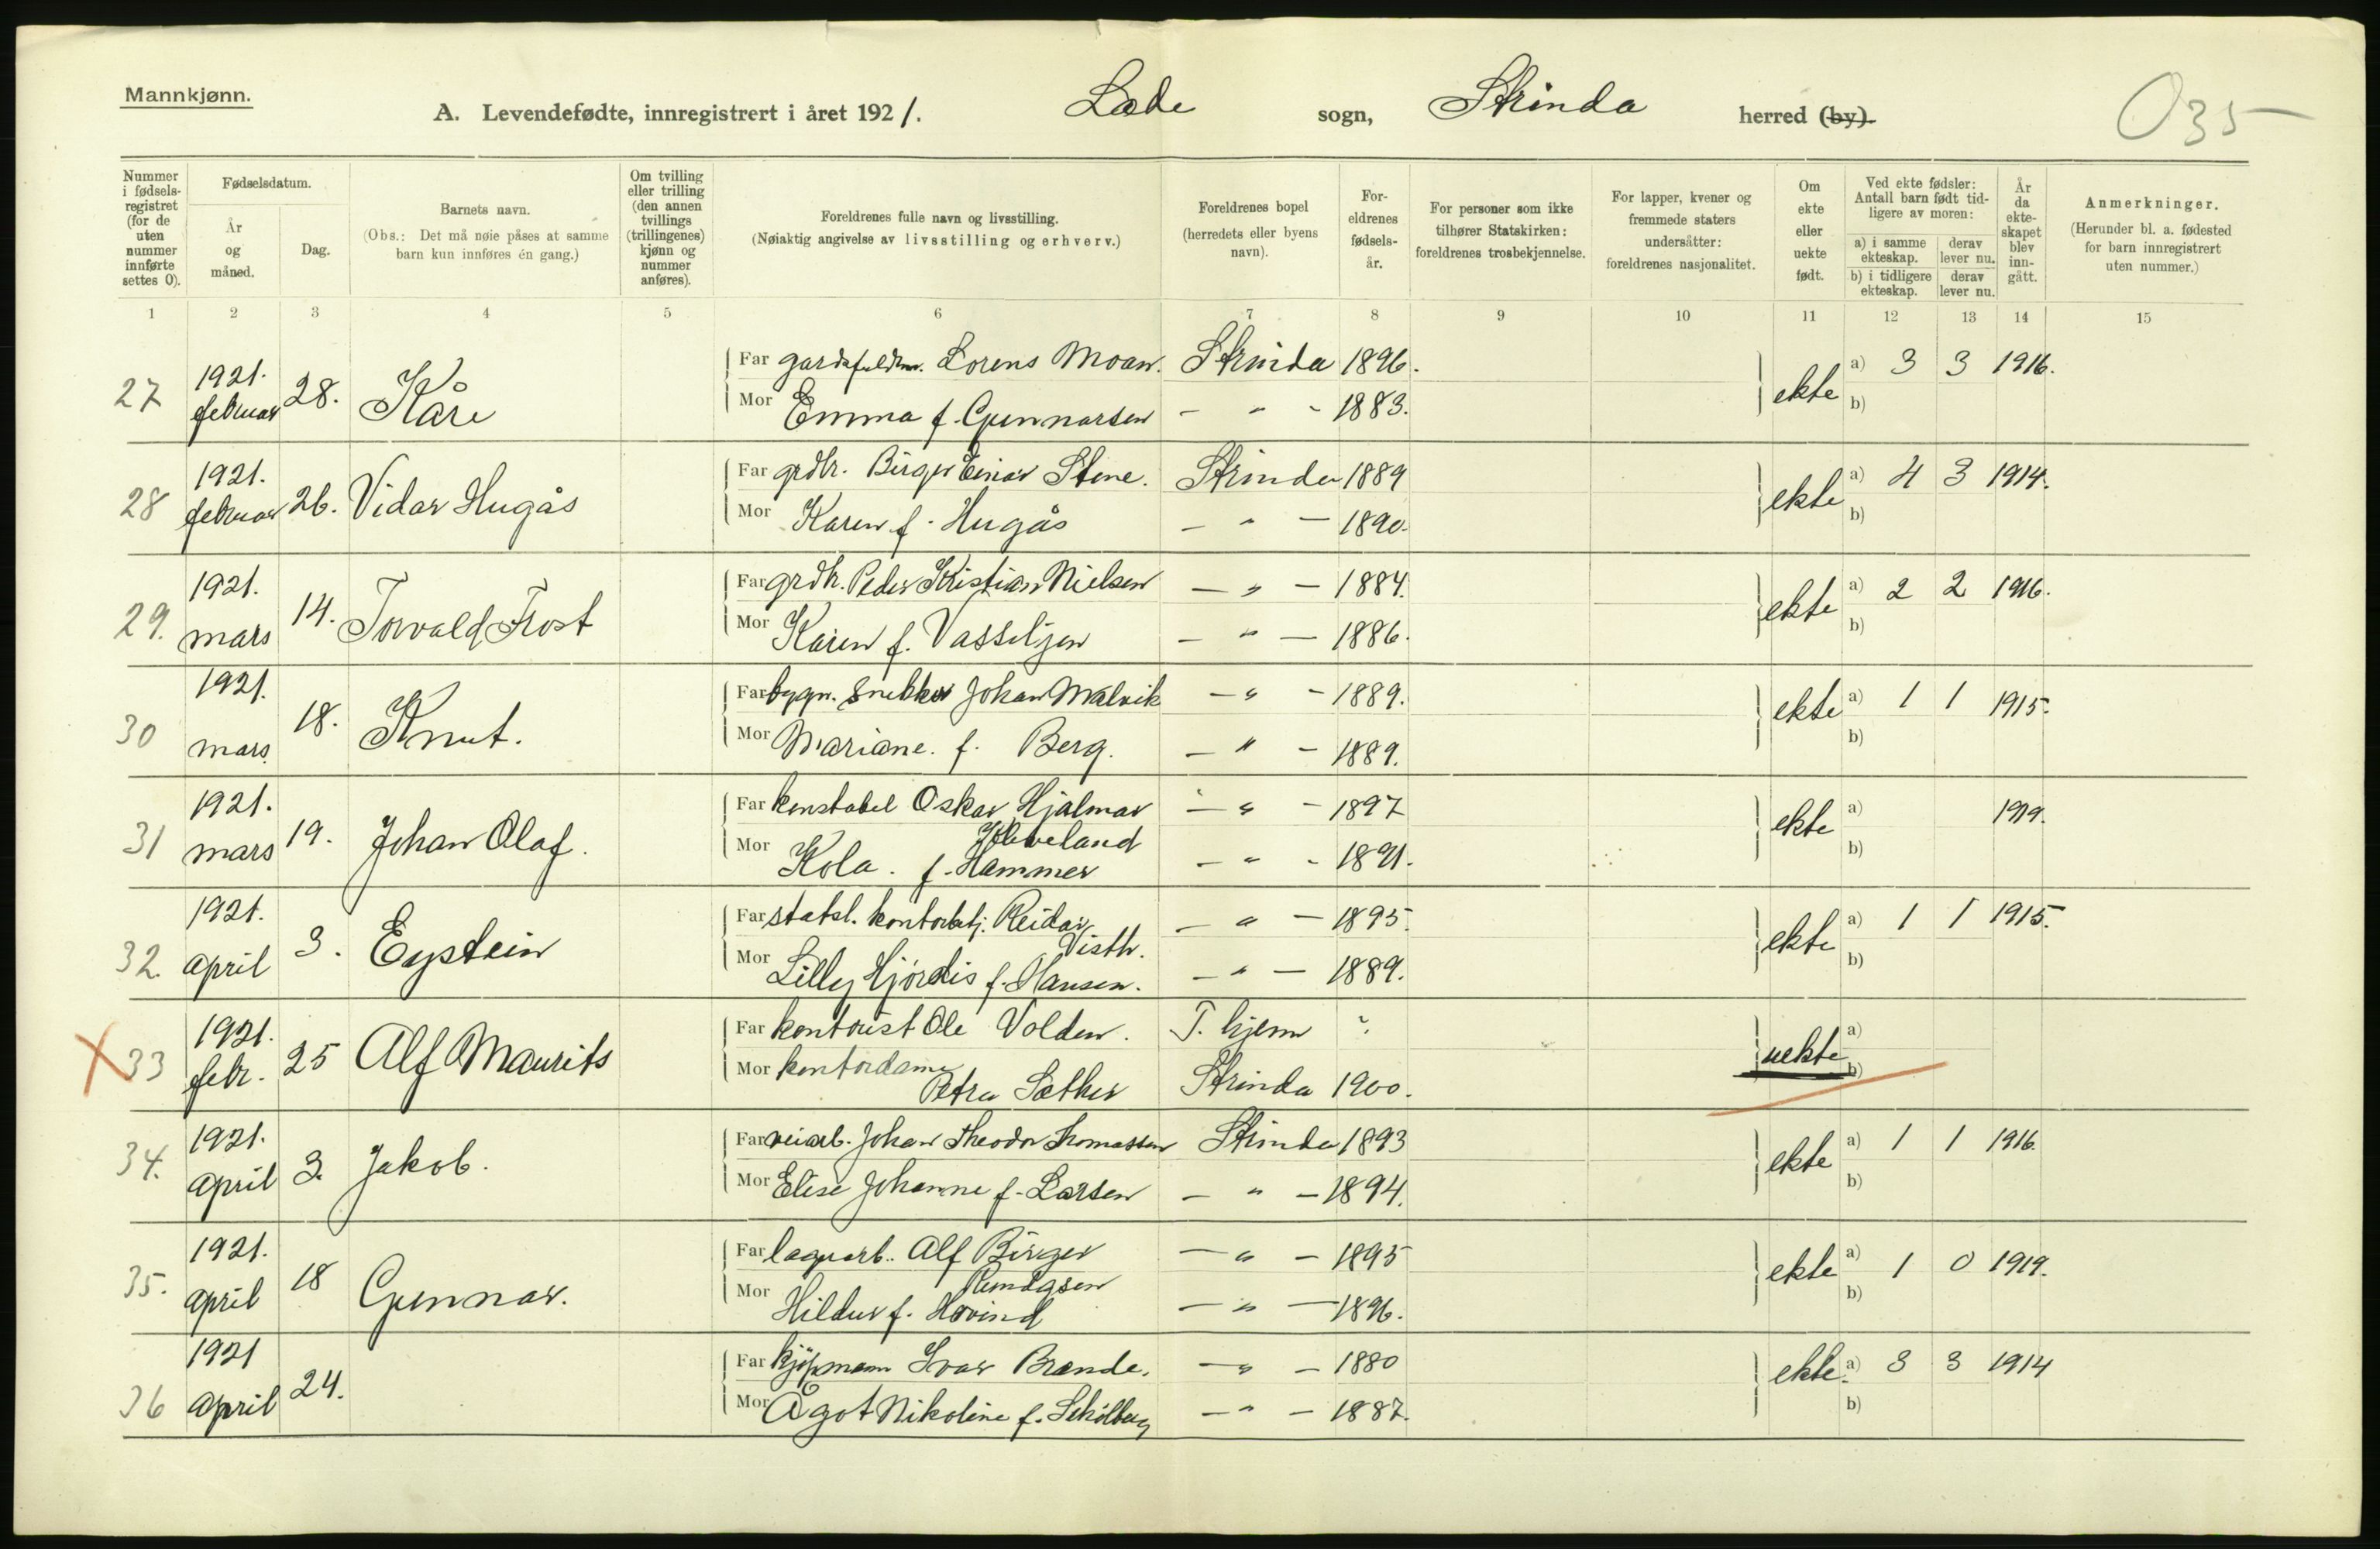 Mannkjønn.
A. Levendefødte, innregistrert i året 1921. Lade sogn, Strinda herred (by).
035
Nummer i fødselsregistret (for de uten nummer innførte settes 0).
Fødselsdatum.
År og måned.
Dag.
Barnets navn.
(Obs.: Det må nøie påses at samme barn kun innføres én gang.)
Om tvilling eller trilling (den annen tvillings (trillingenes) kjønn og nummer anføres).
Foreldrenes fulle navn og livsstilling.
(Nøiaktig angivelse av livsstilling og erhverv.)
Foreldrenes bopel (herredets eller byens navn).
Foreldrenes fødselsår.
For personer som ikke tilhører Statskirken: foreldrenes trosbekjennelse.
For lapper, kvener og fremmede staters undersåtter: foreldrenes nasjonalitet.
Om ekte eller uekte født.
Ved ekte fødsler: Antall barn født tidligere av moren:
a) i samme ekteskap. derav lever nu.
b) i tidligere ekteskap. derav lever nu.
År da ekteskapet blev inngått.
Anmerkninger.
(Herunder bl. a. fødested for barn innregistrert uten nummer.)
1 2 3 4 5 6 7 8 9 10 11 12 13 14 15
27 1921. februar 28. Kåre
Far Lorens Moan. Strinda 1896. ekte a) 3 3 1916.
Mor Emma f. Gunnarsen — " - 1883. b)
28 1921. februar 26. Vidar Hugås
Far grdbr. Birger Einar Stene. Strinda 1889 ekte a) 4 3 1914.
Mor Karen f. Hugås — " — 1890. b)
29. 1921. mars 14. Torvald Frost
Far grdbr. Peder Kristian Nielsen — " — 1884. ekte a) 2 2 1916.
Mor Karen f. Vasseljen — " — 1886. b)
30 1921. mars 18. Knut.
Far bygn. snekker Johan Malvik — " - 1889. ekte a) 1 1 1915.
Mor Mariane. f. Berg. — " - 1889. b)
31 1921. mars 19. Johan Olaf.
Far konstabel Oskar Hjalmar Kleveland — " - 1897 ekte a) 1919.
Mor Kola. f. Hammer — " - 1891. b)
32. 1921. april 3. Eystein
Far statsl. kontorbetj. Reidar Visth. — " — 1895. ekte a) 1 1 1915.
Mor Lilly Hjördis f. Hansen. — " — 1889. b)
X 33 1921. febr. 25 Alf Maurits
Far kontorist Ole Volden. T. hjem ? uekte a)
Mor kontordame Petra Sæther Strinda 1900. b)
34. 1921. april 3. Jakob.
Far veiarb. Johan Theodor Thomassen Strinda 1893 ekte a) 1 1 1916.
Mor Elise Johanne f. Larsen — " — 1894. b)
35. 1921. april 18 Gunnar.
Far lagerarb. Alf Birger — " — 1895 ekte a) 1 0 1919.
Mor Hildur f. Hovind — " — 1896. b)
36 1921 april 24.
Far kjøpmann Ivar Brende. — " — 1880 ekte. a) 3 3 1914
Mor Ågot Nikoline f. — " — 1887. b)